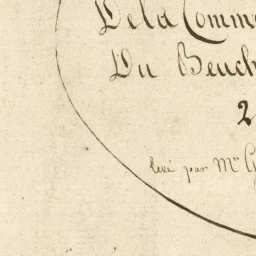 De la Comm
Du Beuch
2
levé par Mr G